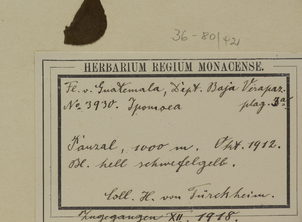 36-80/421
HERBARIUM REGIUM MONACENSE.
Fl. v. Guatemala, Dept. Baja Verapaz.
No 3930. Ipomoea plag. 3a
Panzal, 1000 m. Okt. 1912.
Bl. hell schwefelgelb.
Coll. H. von Türckheim.
Zugegangen XII. 1918.